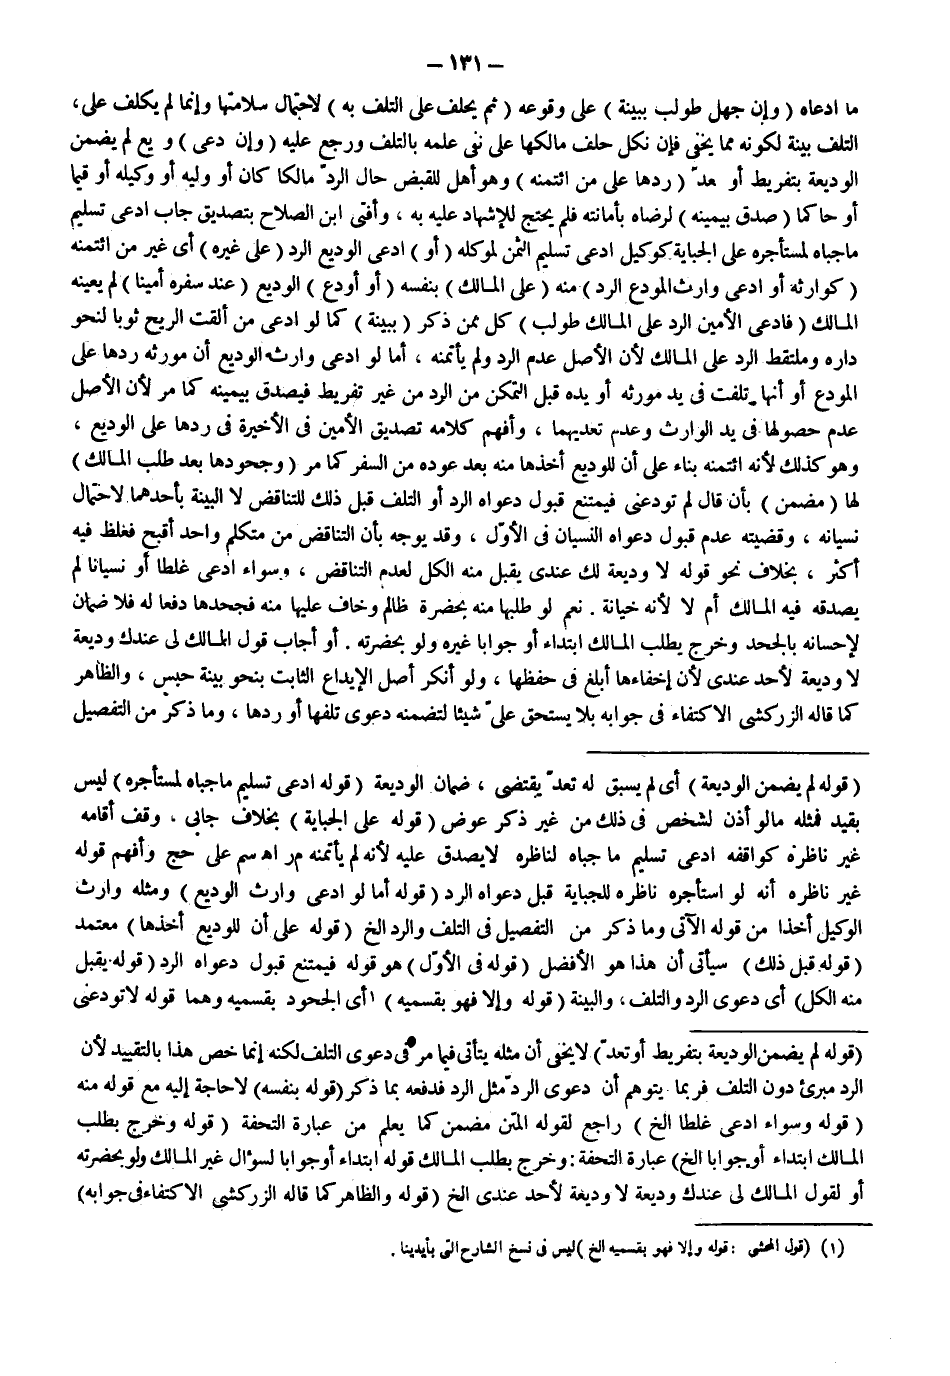 — ١٣١ —
ما ادعاه ( وإن جهل طولب ببينة ) على وقوعه ( ثم يحلف على التلف به ) لاحتمال سلامتها وإنما لم يكلف على،
التلف بينة لكونه مما يخفى فإن نكل حلف مالكها على نفى علمه بالتلف ورجع عليه ( وإن دعى ) و يع لم يضمن
الوديعة بتفريط أو عدّ ( ردها على من ائتمنه ) وهو أهل للقبض حال الردّ مالكا كان أو وليه أو وكيله أو قيما
أو حاكما ( صدق بيمينه ) لرضاه بأمانته فلم يحتج للإشهاد عليه به ، وأفتى ابن الصلاح بتصديق جاب ادعى تسليم
ماجباه لمستأجره على الجباية كوكيل ادعى تسليم الثمن لموكله ( أو ) ادعى الوديع الرد ( على غيره ) أى غير من ائتمنه
( كوارثه أو ادعى وارث المودع الرد ) منه ( على المالك ) بنفسه ( أو أودع ) الوديع ( عند سفره أمينا ) لم يعينه
المالك ( فادعى الأمين الرد على المالك طولب ) كل ممن ذكر ( ببينة ) كما لو ادعى من ألقت الريح ثوبا لنحو
داره وملتقط الرد على المالك لأن الأصل عدم الرد ولم يأتمنه ، أما لو ادعى وارث الوديع أن مورثه ردها على
المودع أو أنها تلفت فى يد مورثه أو يده قبل التمكن من الرد من غير تفريط فيصدق بيمينه كما مر لأن الأصل
عدم حصولها فى يد الوارث وعدم تعديهما ، وأفهم كلامه تصديق الأمين فى الأخيرة فى ردها على الوديع ،
وهو كذلك لأنه ائتمنه بناء على أن للوديع أخذها منه بعد عوده من السفر كما مر ( وجحودها بعد طلب المالك )
لها ( مضمن ) بأن قال لم تودعنى فيمتنع قبول دعواه الرد أو التلف قبل ذلك للتناقض لا البينة بأحدهما لاحتمال
نسيانه ، وقضيته عدم قبول دعواه النسيان فى الأوّل ، وقد يوجه بأن التناقض من متكلم واحد أقبح فغلظ فيه
أكثر ، بخلاف نحو قوله لا وديعة لك عندى يقبل منه الكل لعدم التناقض ، وسواء ادعى غلطا أو نسيانا لم
يصدقه فيه المالك أم لا لأنه خيانة . نعم لو طلبها منه بحضرة ظالم وخاف عليها منه فجحدها دفعا له فلا ضمان
لإحسانه بالجحد وخرج بطلب المالك ابتداء أو جوابا غيره ولو بحضرته . أو أجاب قول المالك لى عندك وديعة
لا وديعة لأحد عندى لأن إخفاءها أبلغ فى حفظها ، ولو أنكر أصل الإيداع الثابت بنحو بينة حبس ، والظاهر
كما قاله الزركشى الاكتفاء فى جوابه بلا يستحق علىّ شيئا لتضمنه دعوى تلفها أو ردها ، وما ذكر من التفصيل
( قوله لم يضمن الوديعة ) أى لم يسبق له تعدّ يقتضى ، ضمان الوديعة ( قوله ادعى تسليم ماجباه لمستأجره ) ليس
بقيد فمثله مالو أذن لشخص فى ذلك من غير ذكر عوض ( قوله على الجباية ) بخلاف جابى ، وقف أقامه
غير ناظره كواقفه ادعى تسليم ما جباه لناظره لايصدق عليه لأنه لم يأتمنه مر اهـ سم على حج وأفهم قوله
غير ناظره أنه لو استأجره ناظره للجباية قبل دعواه الرد ( قوله أما لو ادعى وارث الوديع ) ومثله وارث
الوكيل أخذا من قوله الآتى وما ذكر من التفصيل فى التلف والرد الخ ( قوله على أن للوديع أخذها ) معتمد
( قوله قبل ذلك ) سيأتى أن هذا هو الأفضل ( قوله فى الأوّل ) هو قوله فيمتنع قبول دعواه الرد ( قوله يقبل
منه الكل ) أى دعوى الرد والتلف، والبينة ( قوله وإلا فهو بقسميه ) ١ أى الجحود بقسميه وهما قوله لاتودعنى
(قوله لم يضمن الوديعة بتفريط أو تعدّ) لايخفى أن مثله يتأتى فيما مر فى دعوى التلف لكنه إنما خص هذا بالتقييد لأن
الرد مبرئ دون التلف فربما يتوهم أن دعوى الردّ مثل الرد فدفعه بما ذكر (قوله بنفسه) لاحاجة إليه مع قوله منه
( قوله وسواء ادعى غلطا الخ ) راجع لقوله المتن مضمن كما يعلم من عبارة التحفة ( قوله وخرج بطلب
المالك ابتداء أو جوابا الخ) عبارة التحفة : وخرج بطلب المالك قوله ابتداء أو جوابا لسؤال غير المالك ولو بحضرته
أو لقول المالك لى عندك وديعة لا وديعة لأحد عندى الخ (قوله والظاهر كما قاله الزركشى الاكتفاء فى جوابه)
(١) (قول المحشى : قوله وإلا فهو بقسميه الخ ) ليس فى نسخ الشارح التى بأيدينا .